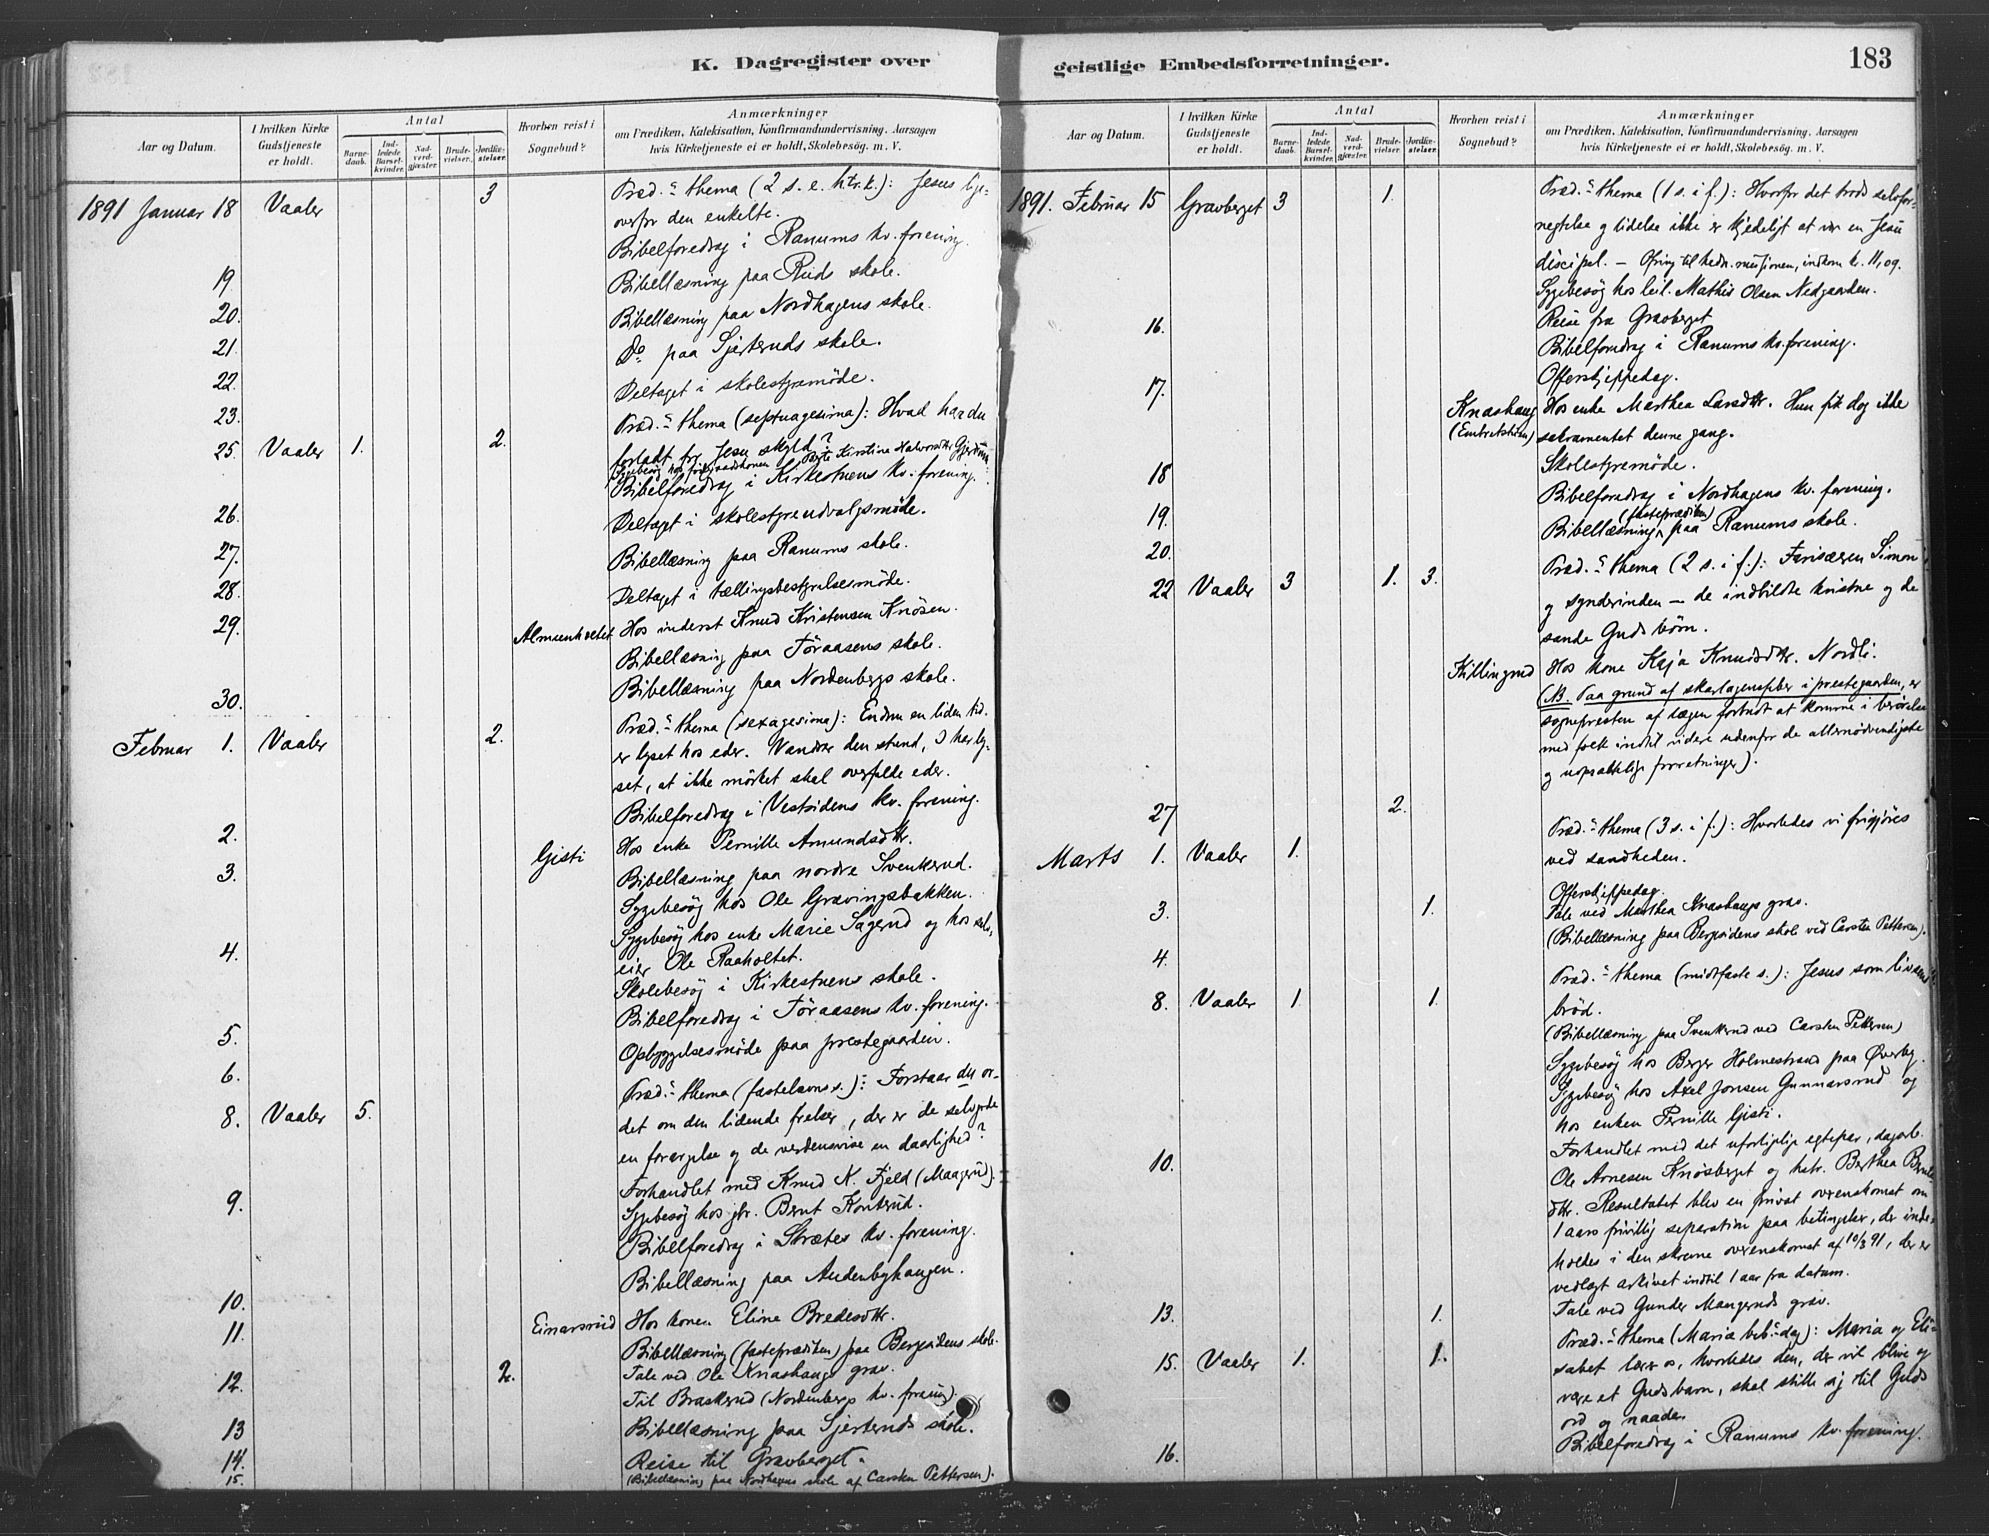 K. Dagregister over
Aar og Datum.
I hvilken Kirke Gudstjeneste er holdt.
Antal
Barnedaab.
Indledede Barselkvinder.
Nadverdgjæster.
Brudevielser.
Jordfæstelser.
Hvorhen reist i Sognebud?
Anmærkninger
om Prædiken, Katekisation, Konfirmandundervisning. Aarsagen
hvis Kirketjeneste ei er holdt, Skolebesøg. m. V.
1891 Januar 18 Vaaler 3 Præd.- thema (2 s. e. htr. k.): Jesus lige-
overfor den enkelte.
Bibelforedrag i Ranums kv. forening.
19 Bibellæsning paa Ruds skole.
20. Bibellæsning paa Nordhagens skole.
21. Do paa Sjerteruds skole.
22. Deltaget i skolestyremöde.
23.
25. Vaaler 1. 2. Præd.- thema (septuagesima): Hvad har du
forladt for Jesu skyld?
Sygebesög hos Kirstine Halvorsdtr
Bibelforedrag i Kirkestuens kv. forening.
26. Deltaget i skolestyreudvalgsmöde.
27. Bibellæsning paa Ranums skole.
28. Deltaget i tællingsbestyrelsesmöde.
29. Hos inderst Knud Kristensen Knösen.
Bibellæsning paa Töraasens skole.
30. Bibellæsning paa Nordenbergs skole.
Februar 1. Vaaler 2. Præd.- thema (sexagesima): Endnu en liden tid
er lyset hos eder. Vandrer den stund, I har ly-
set, at ikke mörket skal overfalde eder.
Bibelforedrag i Vestsidens kv. forening.
2. Gisti Hos enke Pernille Amundsdtr.
3. Bibellæsning paa nordre Svenkerud.
Sygebesög hos Ole Grævingsbakken.
Sygebesög hos enke Marie Sagerud og hos selv-
4. eier Ole Raaholtet.
Skolebesög i Kirkestuens skole.
Bibelforedrag i Töraasens kv. forening.
5. Opbyggelsesmöde paa prestegaarden.
6.
8. Vaaler 5. Præd.- thema (fastelavns s.): Forstaar du or-
det om den lidende frelser, der er de selvgode
en forargelse og de verdensvise en daarlighed?
Forhandlet med Knud K. Fjeld (Maagerud).
9. Sygebesög hos gbr. Bernt Konterud.
Bibelforedrag i Strætes kv. forening.
Bibellæsning paa Audenbyhaugen.
10.
11. Einarsrud Hos konen Eline Bredesdtr.
Bibellæsning (fasteprædiken) paa Bergsidens skole.
12. 2. Tale ved Ole Knashaugs grav.
Til Braskerud (Nordenbergs kv. forening).
13 Bibellæsning paa Sjerteruds skole.
14. Reise til Gravberget.
15. (Bibellæsning paa Nordhagens skole af Carsten Pettersen).
geistlige Embedsforretninger.
183
Aar og Datum.
I hvilken Kirke Gudstjeneste er holdt.
Antal
Barnedaab.
Indledede Barselkvinder.
Nadverdgjæster.
Brudevielser.
Jordfæstelser.
Hvorhen reist i Sognebud?
Anmærkninger
om Prædiken, Katekisation, Konfirmandundervisning. Aarsagen
hvis Kirketjeneste ei er holdt, Skolebesøg. m. V.
1891. Februar 15 Gravberget 3 1. Præd.- thema (1 s. i f.): Hvorfor det trods selvfor-
negtelse og lidelse ikke er kjedeligt at være en Jesu
discipel. – Ofring til hedn. missionen, indkom kr. 11,09.
Sygebesög hos leil. Mathis Olsen Nedgaarden.
16. Reise fra Gravberget
Bibelforedrag i Ranums kv. forening.
17. Offerskjeppedag.
Knashaug Hos enke Marthea Larsdtr. Hun fik dog ikke
(Embretstuen) sakramentet denne gang.
18 Skolestyremöde.
Bibelforedrag i Nordhagens kv. forening.
19. (fasteprædiken)
Bibellæsning paa Ranums skole.
20.
22 Vaaler 3 1. 3. Præd.- thema (2 s. i f.): Farisæeren Simon
og synderinden – de indbildte kristne og de
sande Guds börn.
Killingrud Hos kone Kaja Knudsdtr. Nordli.
(NB. Paa grund af skarlagensfeber i prestegaarden, er
sognepresten af lægen forbudt at komme i berörelse
med folk indtil videre udenfor de allernödvendigste
og uopsættelige forretninger).
27 2.
Marts 1. Vaaler 1. Præd.- thema (3 s. i f.): Hvorledes vi frigjöres
ved sandheden.
Offerskjeppedag.
3. 1. Tale ved Marthea Knashaugs grav.
(Bibellæsning paa Bergsidens skole ved Carsten Pettersen).
4.
8. Vaaler 1. 1. Præd.- thema (midtfaste s.): Jesus som livsens
bröd.
(Bibellæsning paa Svenkerud ved Carsten Pettersen)
Sygebesög hos Berger Holmestrand paa Øverby.
Sygebesög hos Axel Jonsen Gunnarsrud og
hos enken Pernille Gisti.
10. Forhandlet med det uforligelige egtepar, dagarb.
Ole Arnesen Knösberget og hstr. Berthea Bernts-
dtr. Resultatet blev en privat overenskomst om
1 aars frivillig separation paa betingelser, der inde-
holdes i den skrevne overenskomst af 10/3 91, der er
vedlagt arkivet indtil 1 aar fra datum.
13. 1. Tale ved Gunder Maugeruds grav.
15. Vaaler 1. 1. Præd.- thema (Mariæ beb.- dag): Maria og Eli-
sabet lærer os, hvorledes den, der vil blive og
være et Guds barn, skal stille sig til Guds
ord og naade.
16. Bibelforedrag i Ranums kv. forening.